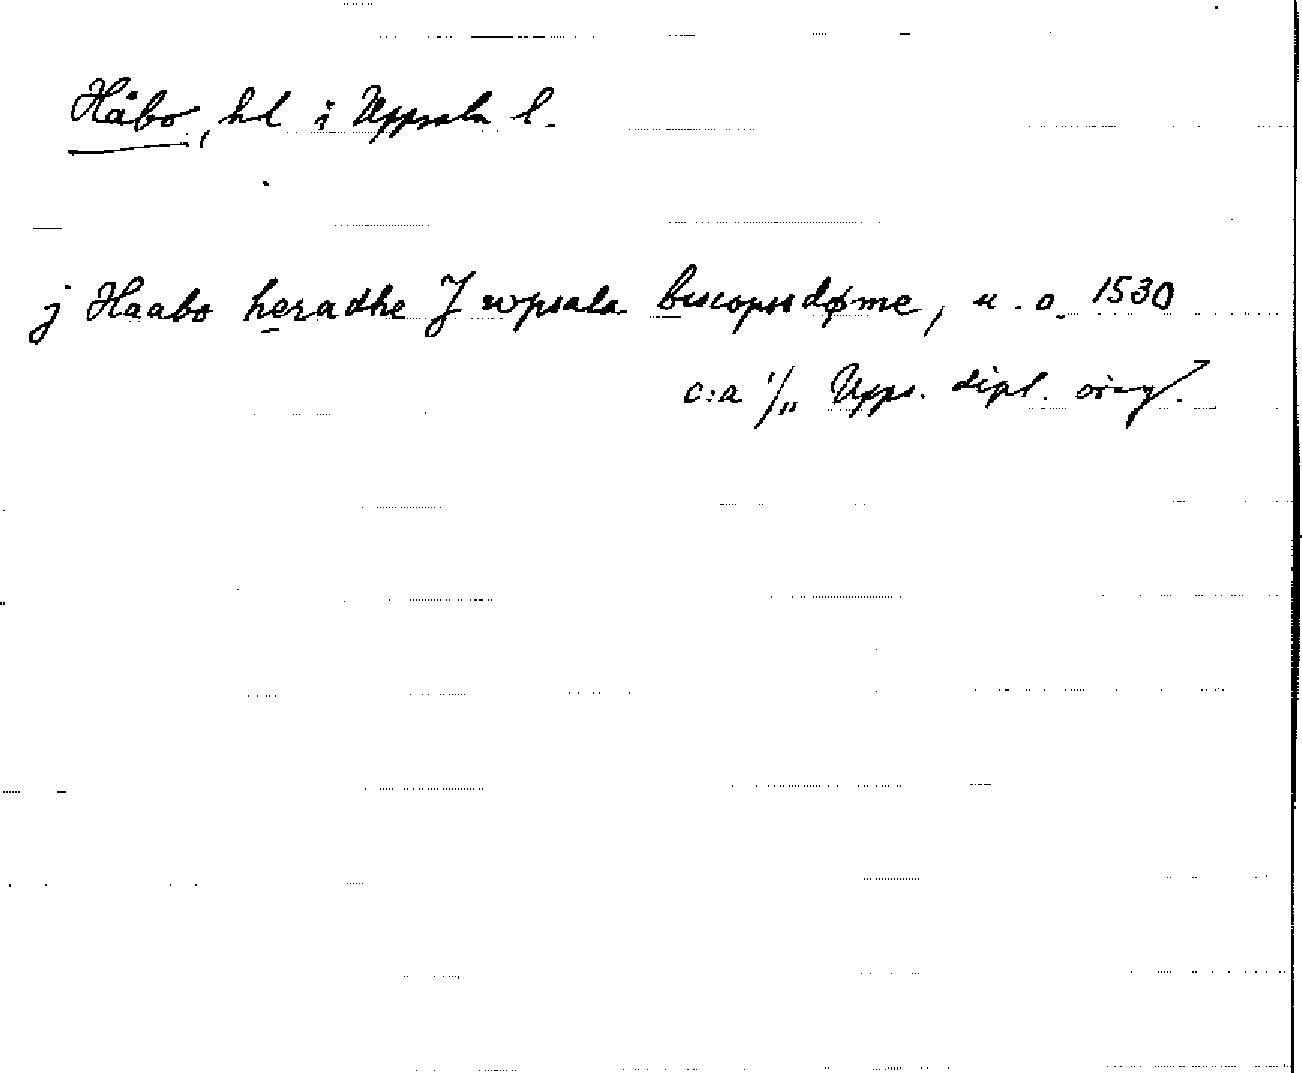 Håbo, hd i Uppsala l.
j Haabo heradhe J wpsala biscopssdøme, u. o. 1530
c:a 1/11 Upps. dipl. orig.